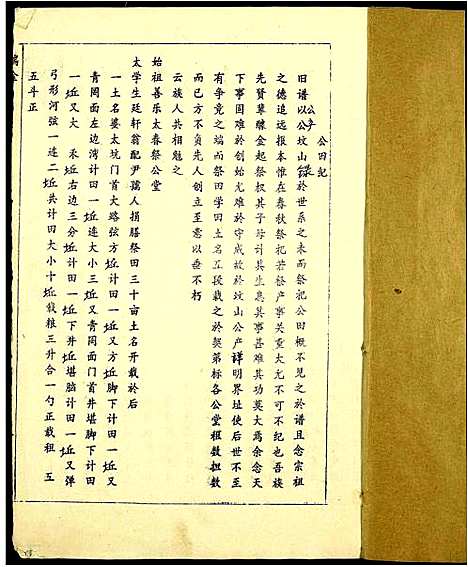 公田記
旧谱以公坟山錄於世系之末而祭祀公田概不見之於谱且念宗祖
公产
之德追远报本惟在春秋祭祀若祭产事关重大尤不可不纪也吾族
先賢輩醵金起祭权其子母计其生息其事甚难其功莫大焉余念天
下事固难於创始尤难於守成故於坟山公产詳明界址使后世不至
有争竞之端而祭田学田土名五段载之於契第标各公堂租数担数
而已方不负先人创立至意以垂不朽
云族人共相勉之
始祖善乐太春祭公堂
太学生廷轩翁配尹孺人捐膳祭田三十亩土名开载於后
一土名婆太坑门首大路弦方坵计田一坵又方坵脚下计田一坵又
青岡面左边湾计田一坵连大小三坵又青岡面门首井堪脚下计田
一坵又大禾坵右边三分坵计田一坵下井坵堪脑计田一坵又洋
弓形河弦一连二坵共计田大小十坵饯粮三升合一勺正载租 五
五斗正